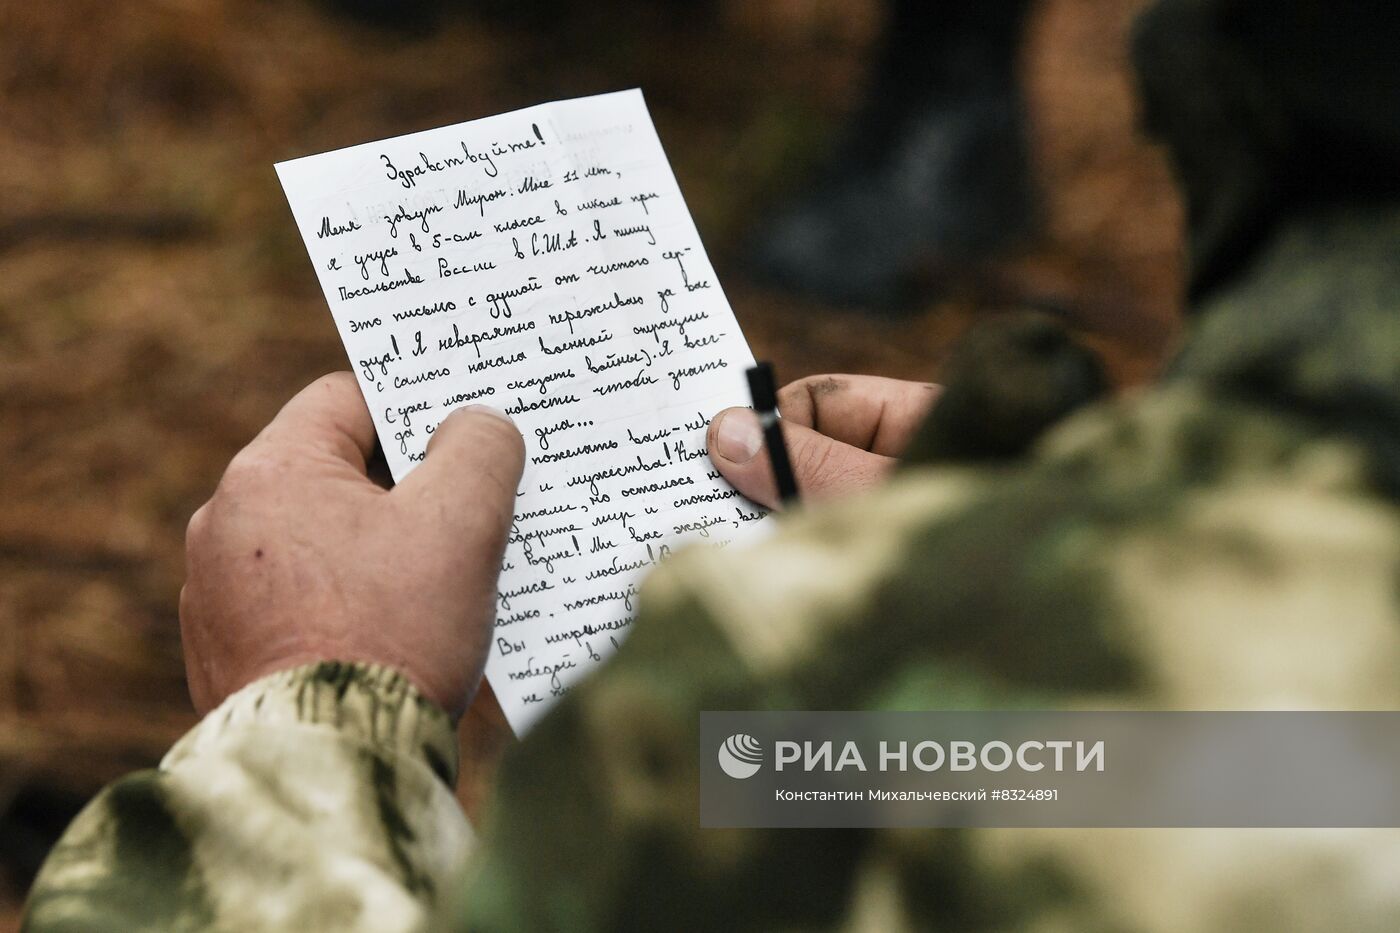 Здравствуйте!
Меня зовут Мирон! Мне 11 лет,
я учусь в 5-ом классе в школе при
Посольстве России в С.Ш.А. Я пишу
это письмо с душой от чистого сер-
дца! Я невероятно переживаю за вас
с самого начала военной операции
(уже можно сказать войны). Я всег-
да новости чтобы знать
ка дела...
пожелать вам-
и мужества!
устали, но осталось
мир и спокойст
й Родине! Мы вас ждём,
димся и любим!
олько, пожалуй
Вы
победой в
не
РИА НОВОСТИ
Константин Михальчевский #8324891